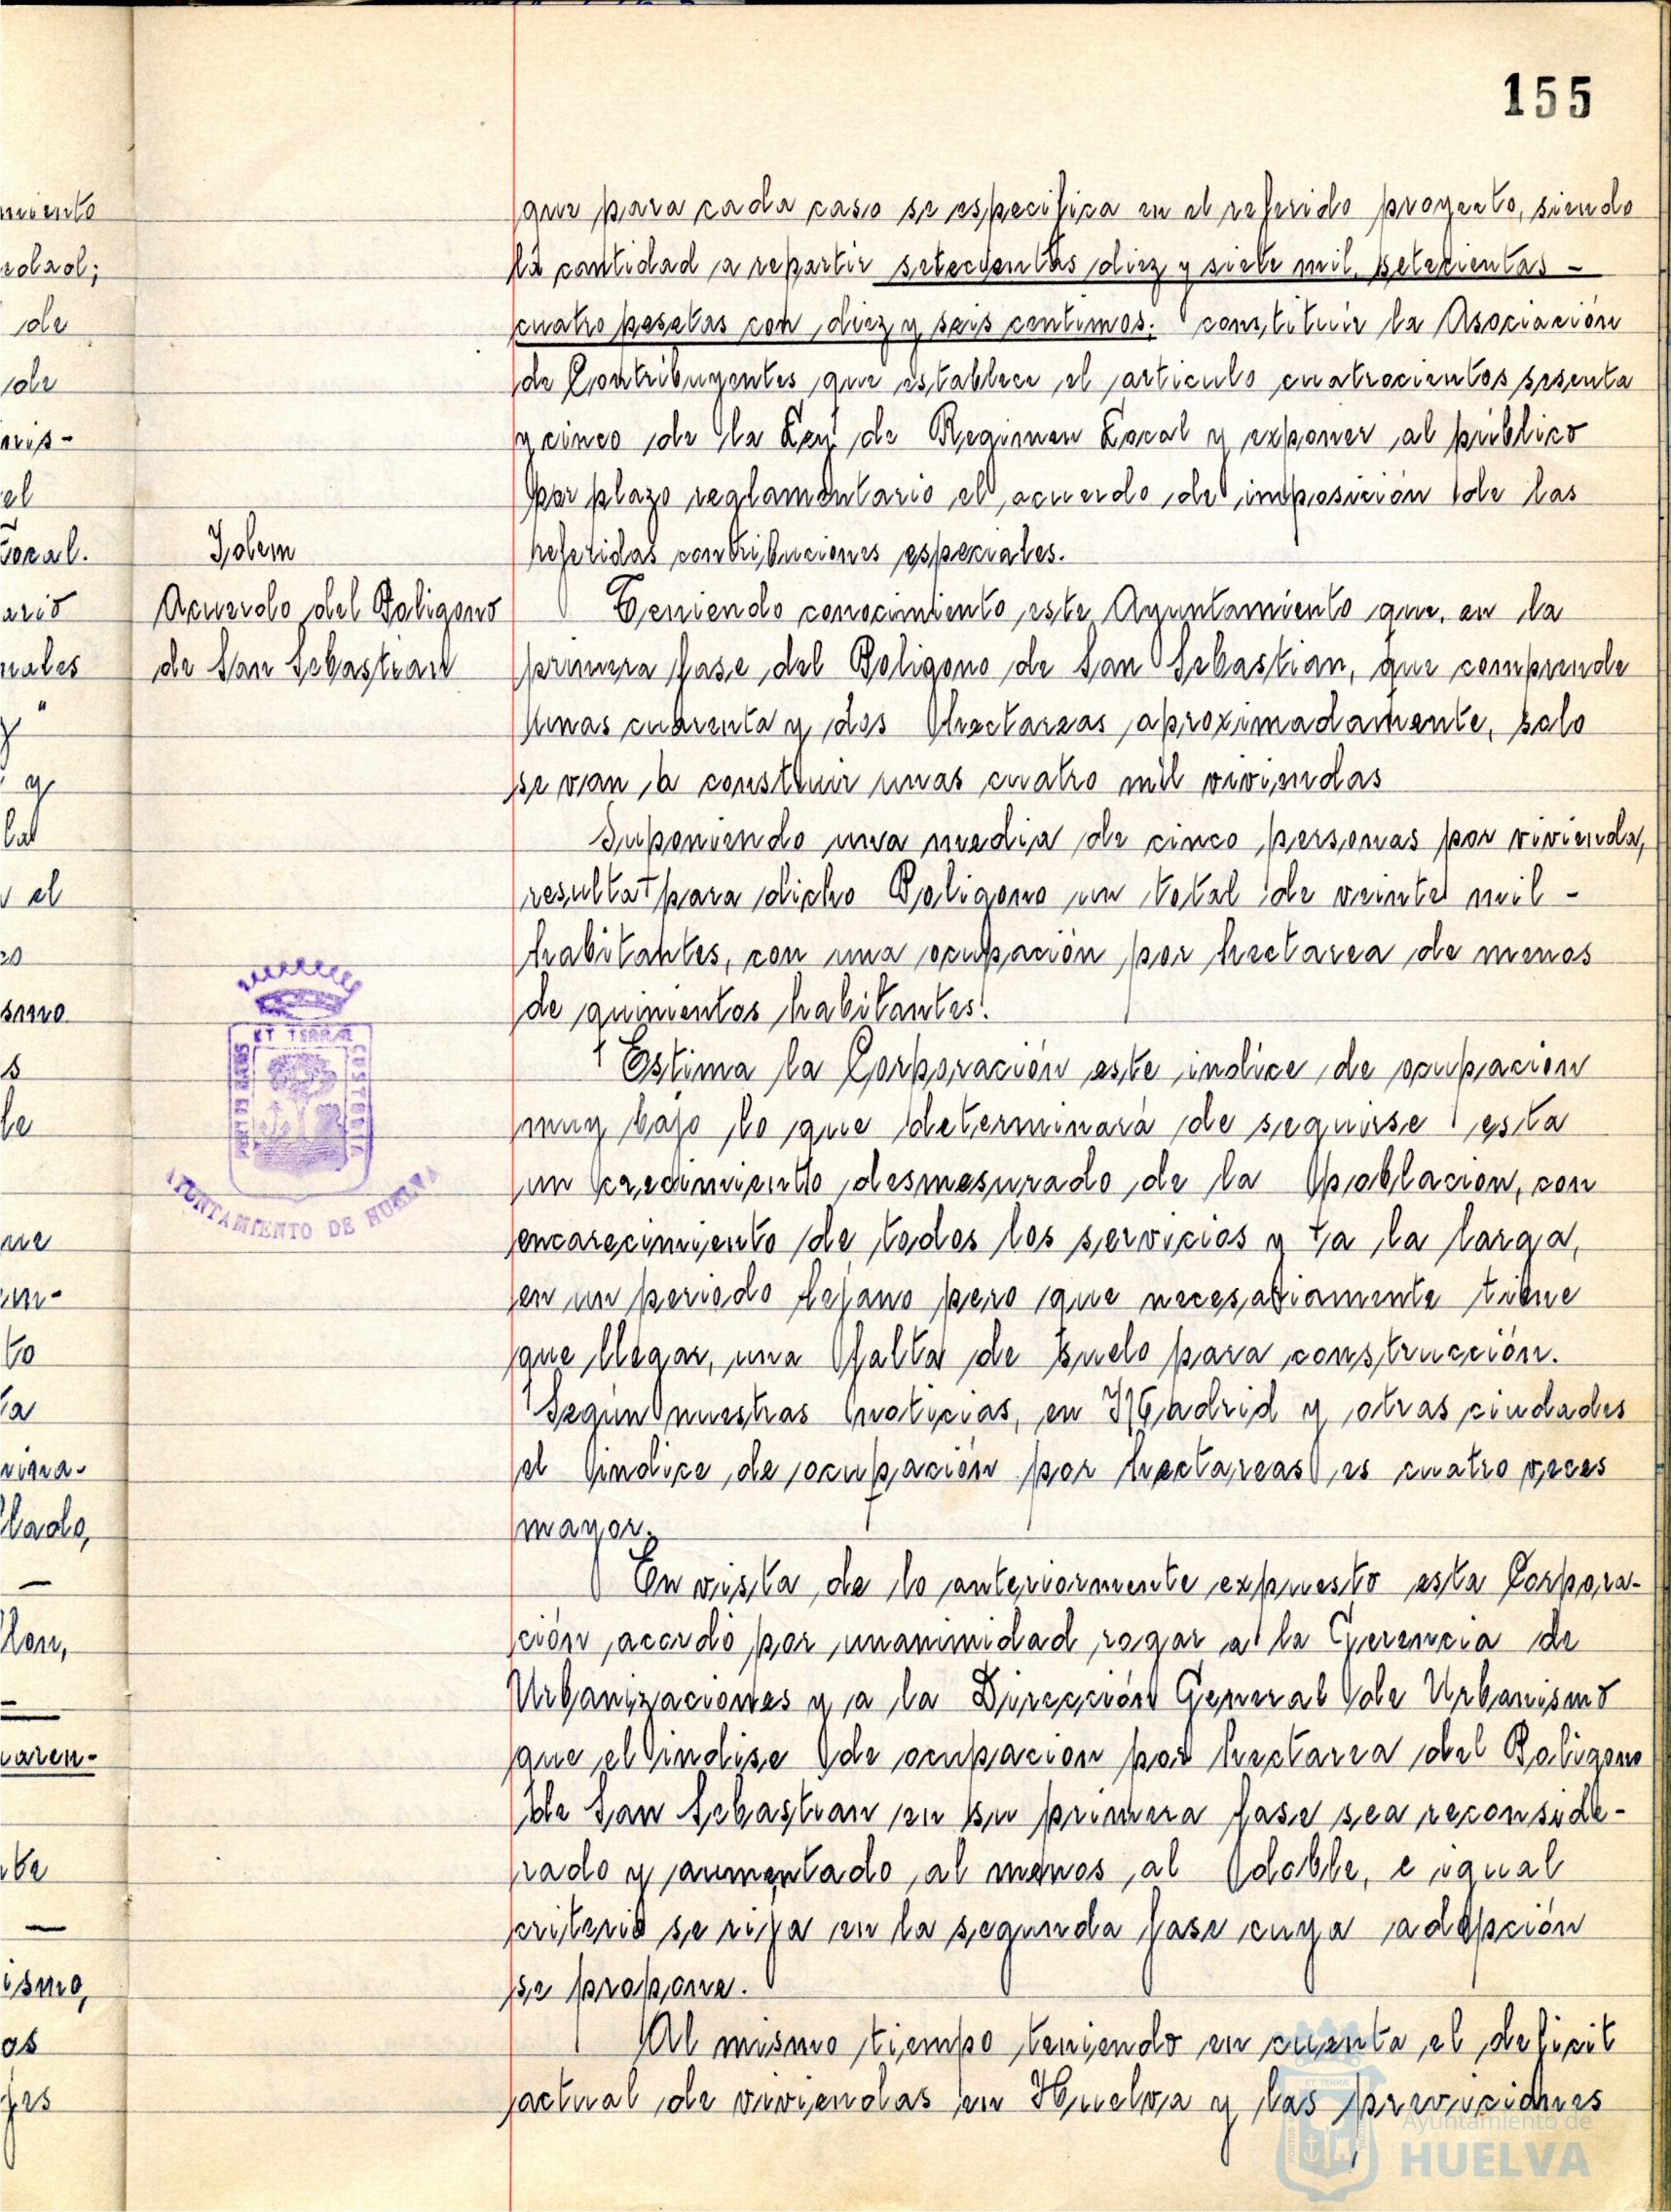 155
que para cada caso se especifica en el referido proyecto, siendo
la cantidad a repartir setecientas diez y siete mil setecientas -
cuatro pesetas con diez y seis centimos. constituir la Asociación
de Contribuyentes que establece el articulo cuatrocientos sesenta
y cinco de la Ley de Regimen Local y exponer al público
por plazo reglamentario el acuerdo de imposición de las
referidas contribuciones especiales.
Idem
Acuerdo del Poligono
de San Sebastian
Teniendo conocimiento este Ayuntamiento que, en la
primera fase del Poligono de San Sebastian, que comprende
unas cuarenta y dos hectareas aproximadamente, solo
se van a construir unas cuatro mil viviendas
Suponiendo una media de cinco personas por vivienda,
resulta para dicho Poligono un total de veinte mil -
habitantes, con una ocupación por hectarea de menos
de quinientos habitantes.
Estima la Corporación este indice de ocupacion
muy bajo lo que determinará de seguirse esta
un crecimiento desmesurado de la poblacion, con
encarecimiento de todos los servicios y a la larga,
en un periodo lejano pero que necesariamente tiene
que llegar, una falta de suelo para construcción.
Según nuestras noticias, en Madrid y otras ciudades
el indice de ocupación por hectareas es cuatro veces
mayor.
En vista de lo anteriormente expuesto esta Corpora-
ción acordó por unanimidad rogar a la Gerencia de
Urbanizaciones y a la Dirección General de Urbanismo
que el indise de ocupacion por hectarea del Poligono
de San Sebastian en su primera fase sea reconside-
rado y aumentado al menos al doble, e igual
criterio se rija en la segunda fase cuya adopción
se propone.
Al mismo tiempo teniendo en cuenta el deficit
actual de viviendas en Huelva y las previciones
miento
de
de
el
local.
y
el
smo
le
to
ismo,
os
ET TERRÆ
AYUNTAMIENTO DE HUELVA
Ayuntamiento de
HUELVA